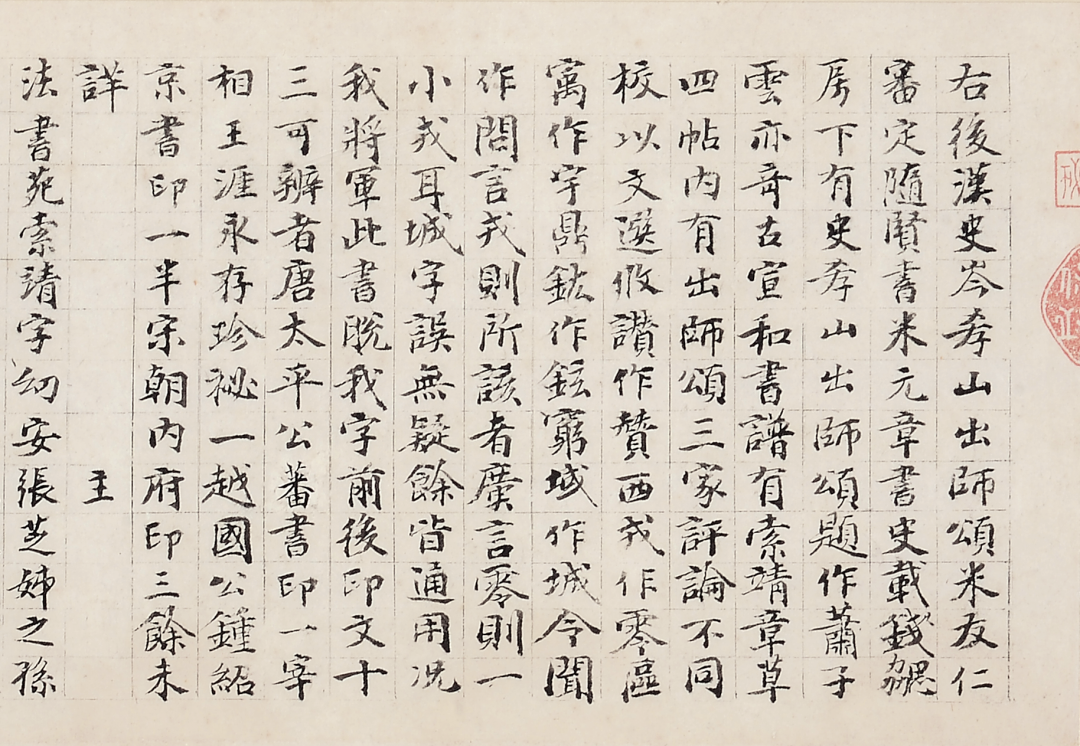 右後漢史岑孝山出師頌米友仁
審定隨賢書米元章書史載錢勰
房下有史孝山出師頌題作蕭子
雲亦奇古宣和書譜有索靖章草
四帖內有出師頌三家評論不同
校以文選攸讚作贊西戎作零區
寓作宇鼎鉉作鉉窮域作城今聞
作問言戎則所該者廣言零則一
小戎耳城字誤無疑餘皆通用况
我將軍此書脫我字前後印文十
三可辨者唐太平公蕃書印一宰
相王涯永存珍祕一越國公鍾紹
京書印一半宋朝內府印三餘未
詳 王
法書苑索靖字幼安張芝姊之孫